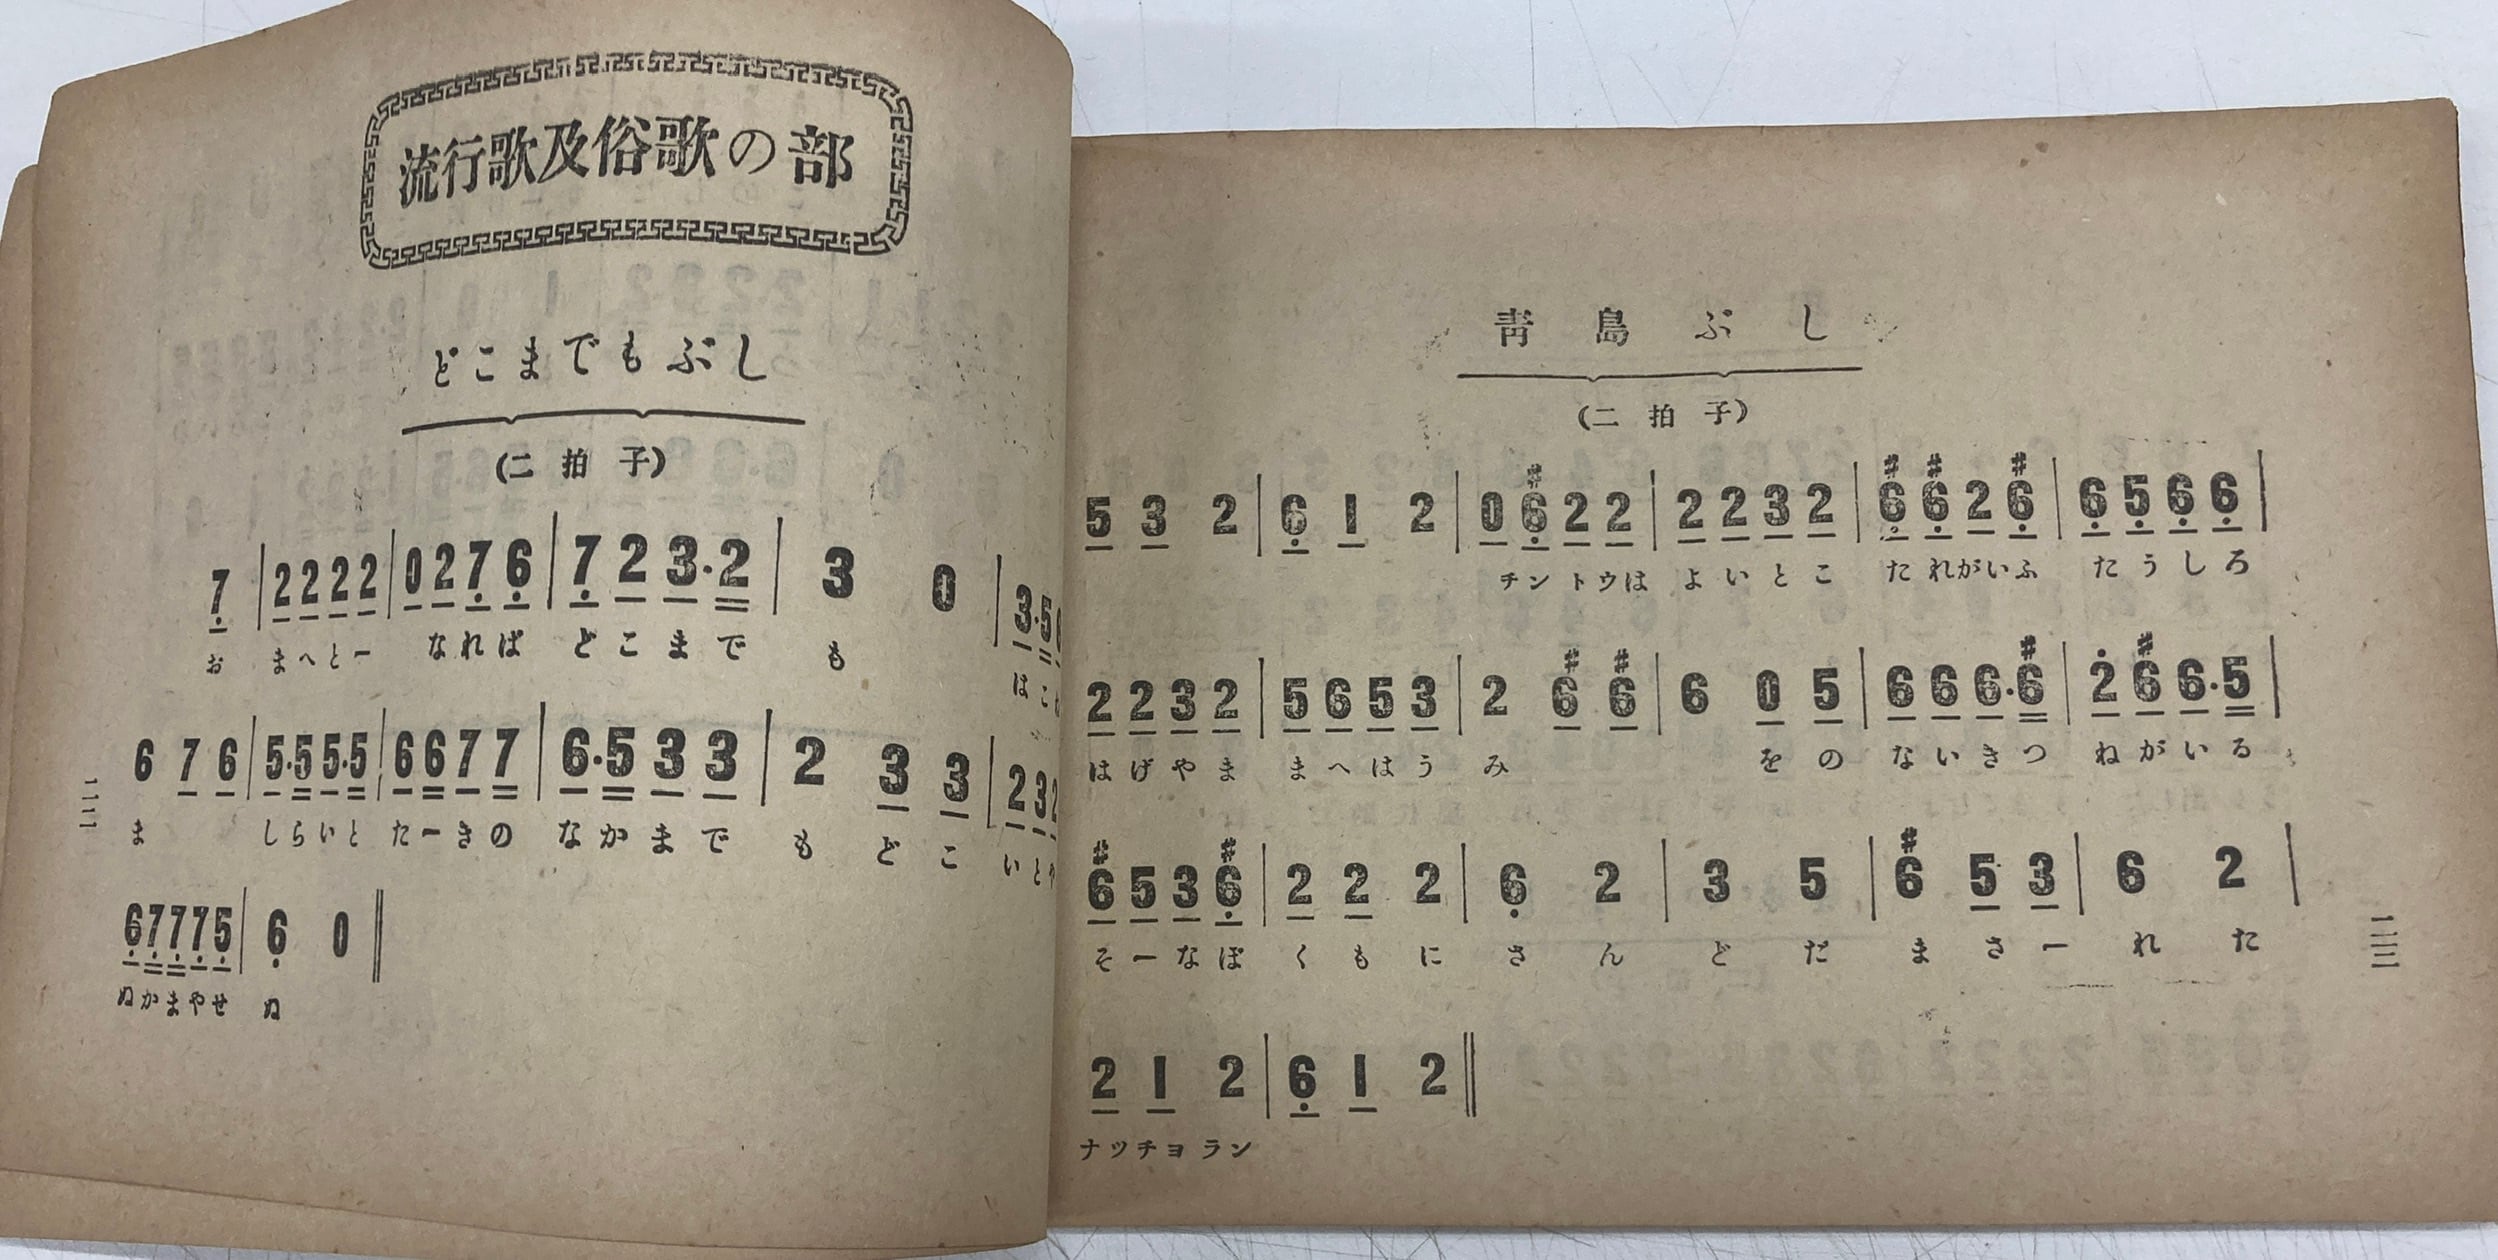 流行歌及俗歌の部
どこまでもぶし
(二拍子)
7 | 2 2 2 2 | 0 2 7 6 | 7 2 3・2 | 3 0 | 3・5
お まへとー なれば どこまで も はこ
6 7 6 | 5・5 5・5 | 6 6 7 7 | 6・5 3 3 | 2 3 3 | 2 3 2
ま しらいと たーきの なかまで も どこ いと
6 7 7 7 5 | 6 0 ‖
ぬかまやせ ぬ
一二二
青島ぶし
(二拍子)
5 3 2 | 6 1 2 | 0 #6 2 2 | 2 2 3 2 | #6 #6 2 #6 | 6 5 6 6 |
チントウは よいとこ たれがいふ たうしろ
2 2 3 2 | 5 6 5 3 | 2 #6 #6 | 6 0 5 | 6 6 6・#6 | 2 #6 6・5 |
はげやま まへはう み をの ないきつ ねがいる
#6 5 3 #6 | 2 2 2 | 6 2 | 3 5 | #6 5 3 | 6 2 |
そーなぼ くもに さん どだ まさー れた
2 1 2 | 6 1 2 ‖
ナツチヨラン
一二三